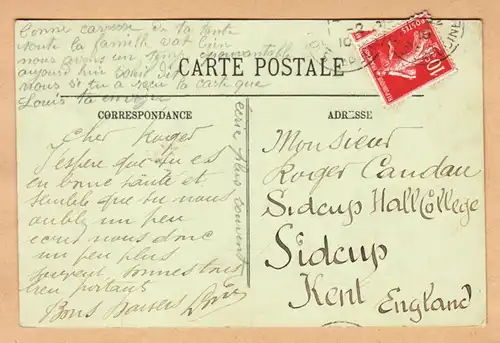 Bonne caresse de ta tante
toute la famille vat bien
nous avons un temps épouvantable
aujourd hui
nous si tu a reçu la carte que
Louis ta envoyé
CARTE POSTALE
CORRESPONDANCE
ADRESSE
Cher Roger
J'espere que tu es
en bonne santé et
semble que tu nous
oubli un peu
ecris nous donc
un peu plus
souvent sommes tous
bien portant
Bons Baisers
ecris plus souvent
Monsieur
Roger Candau
Sidcup Hall College
Sidcup
Kent England
10
POSTES